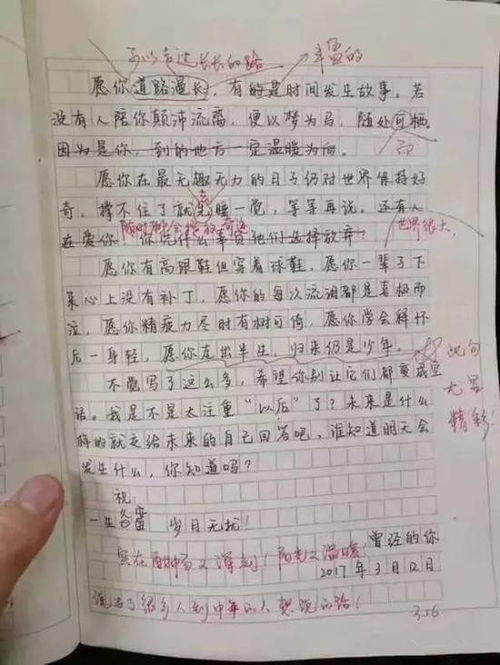 可以走过长长的路
丰富的
愿你道路漫长,有的是时间发生故事。若
没有人陪你颠沛流离,便以梦为马,随处可栖。
因为是你,到的地方一定温暖为向。
而
愿你在最无趣无力的日子仍对世界保持好
奇。撑不住了就先睡一觉,等等再说。还有人
在爱你
世界很大
愿你有高跟鞋但穿着球鞋,愿你一辈子下
来心上没有补丁,愿你的每次流泪都是喜极而
泣,愿你精疲力尽时有树可倚,愿你学会释怀
后一身轻,愿你走出半生,归来仍是少年。
此句
不觉写了这么多,希望你别让它们都变成空
尤显
话。我是不是太注重“以后”了?未来是什么
精彩
样的就交给未来的自己回答吧,谁知道明天会
发生什么,你知道吗?
祝:
一生 岁月无扰!
曾经的你
实在酣畅又深刻!阳光又温暖
2017年3月12日
说出了很多人到中年的人想说的话!
3.16